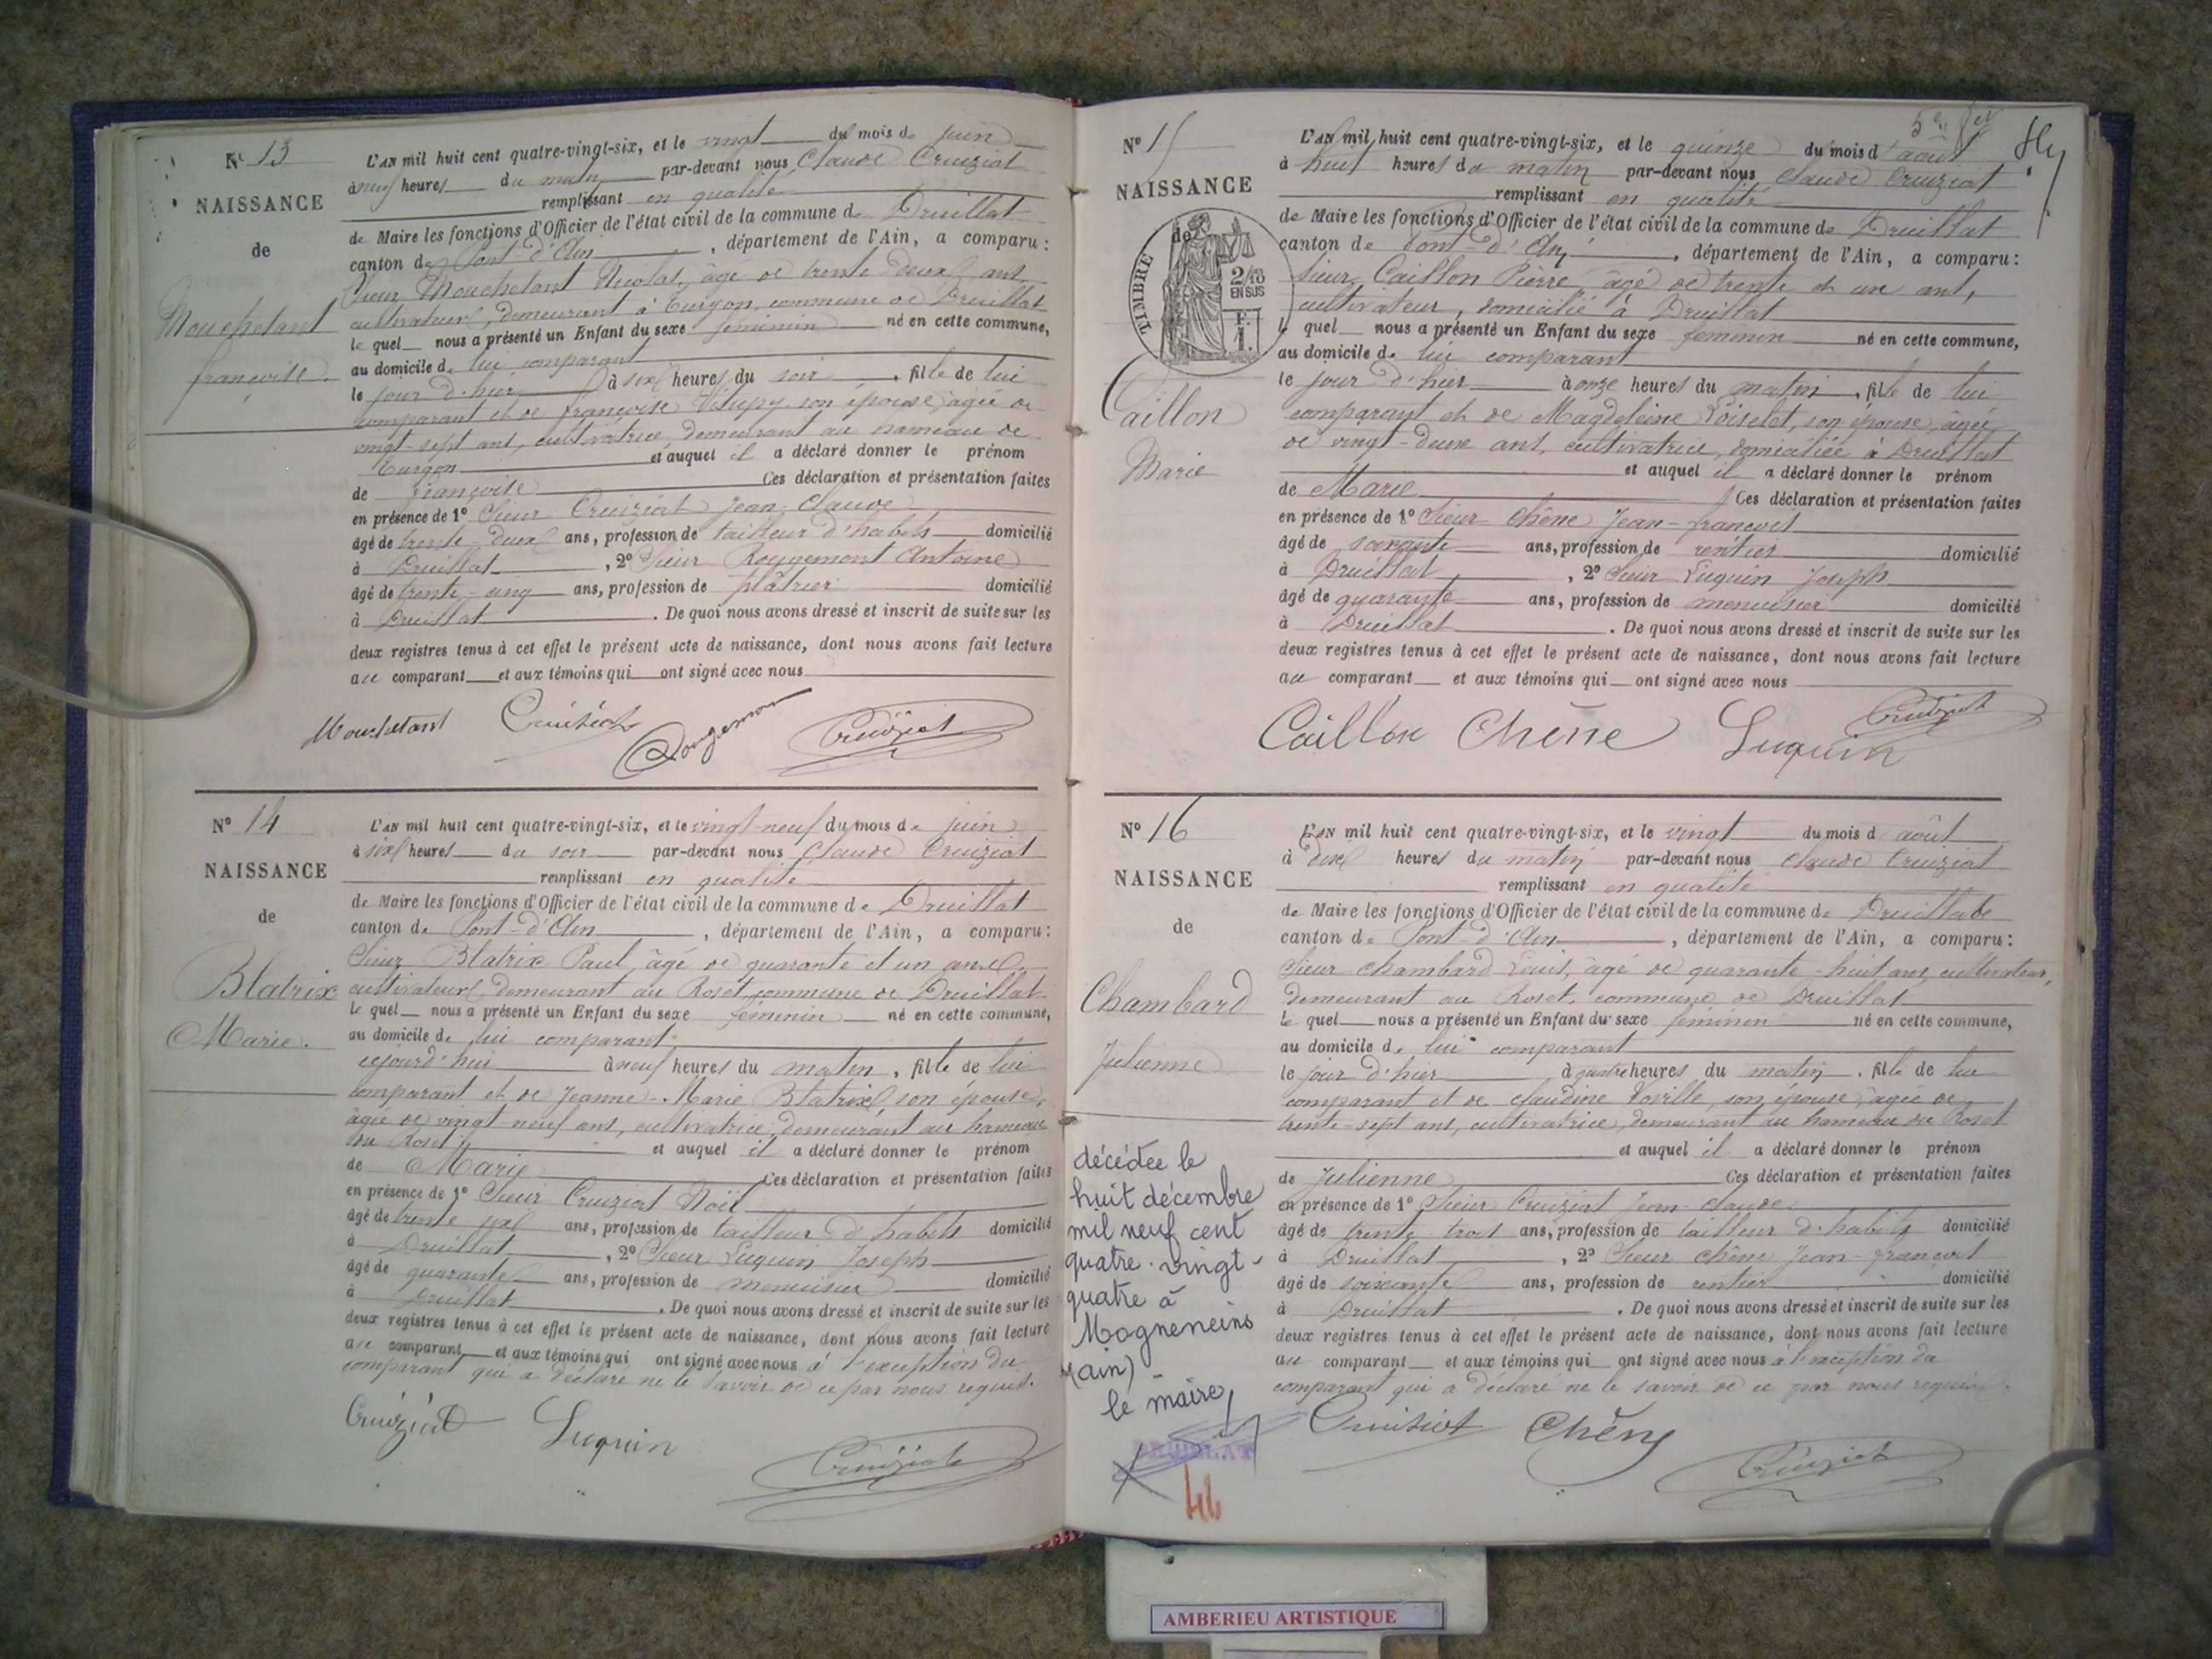 N° 13
NAISSANCE
de
Mouchetant
françoise.
L'AN mil huit cent quatre-vingt-six, et le vingt du mois de juin
à neuf heures du matin par-devant nous Claude Cruiziat
remplissant en qualité
de Maire les fonctions d'Officier de l'état civil de la commune de Druillat
canton de Pont-d'Ain, département de l'Ain, a comparu:
Sieur Mouchetant Nicolas, âgé de trente deux ans,
cultivateur, demeurant à Turgon, commune de Druillat
le quel nous a présenté un Enfant du sexe féminin né en cette commune,
au domicile de lui comparant
le jour d'hier à six heures du soir, fille de lui
comparant et de françoise son épouse, âgée de
vingt-sept ans, cultivatrice demeurant au hameau de
Turgon et auquel il a déclaré donner le prénom
de françoise Ces déclaration et présentation faites
en présence de 1° Sieur Cruiziat Jean-Claude
âgé de trente-deux ans, profession de tailleur d'habits domicilié
à Druillat, 2° Sieur Rougemont Antoine
âgé de trente-cinq ans, profession de plâtrier domicilié
à Druillat. De quoi nous avons dressé et inscrit de suite sur les
deux registres tenus à cet effet le présent acte de naissance, dont nous avons fait lecture
au comparant et aux témoins qui ont signé avec nous
Mouchetant Cruiziat Rougemont Cruiziat
N° 14
NAISSANCE
de
Blatrix
Marie.
L'AN mil huit cent quatre-vingt-six, et le vingt-neuf du mois de juin
à six heures du soir par-devant nous Claude Cruiziat
remplissant en qualité
de Maire les fonctions d'Officier de l'état civil de la commune de Druillat
canton de Pont-d'Ain, département de l'Ain, a comparu:
Sieur Blatrix Paul, âgé de quarante et un ans,
cultivateur, demeurant au Roset commune de Druillat
le quel nous a présenté un Enfant du sexe féminin né en cette commune,
au domicile de lui comparant
cejourd'hui à neuf heures du matin, fille de lui
comparant et de Jeanne-Marie Blatrix, son épouse,
âgée de vingt-neuf ans, cultivatrice, demeurant au hameau
du Roset et auquel il a déclaré donner le prénom
de Marie Ces déclaration et présentation faites
en présence de 1° Sieur Cruiziat Noël
âgé de trente six ans, profession de tailleur d'habits domicilié
à Druillat, 2° Sieur Luquin Joseph
âgé de quarante ans, profession de menuisier domicilié
à Druillat. De quoi nous avons dressé et inscrit de suite sur les
deux registres tenus à cet effet le présent acte de naissance, dont nous avons fait lecture
au comparant et aux témoins qui ont signé avec nous à l'exception du
comparant qui a déclaré ne le savoir de ce par nous requis.
Cruiziat Luquin Cruiziat
N° 15
NAISSANCE
de
TIMBRE
2/10
EN SUS
F.
1.
Caillon
Marie
L'AN mil huit cent quatre-vingt-six, et le quinze du mois d'août
à huit heures du matin par-devant nous Claude Cruiziat
remplissant en qualité
de Maire les fonctions d'Officier de l'état civil de la commune de Druillat
canton de Pont-d'Ain, département de l'Ain, a comparu:
Sieur Caillon Pierre, âgé de trente et un ans,
cultivateur, domicilié à Druillat
le quel nous a présenté un Enfant du sexe féminin né en cette commune,
au domicile de lui comparant
le jour d'hier à onze heures du matin, fille de lui
comparant et de Magdeleine Loiselet, son épouse, âgée
de vingt-deux ans, cultivatrice, domiciliée à Druillat
et auquel il a déclaré donner le prénom
de Marie Ces déclaration et présentation faites
en présence de 1° Sieur Chêne Jean-françois
âgé de soixante ans, profession de rentier domicilié
à Druillat, 2° Sieur Luquin Joseph
âgé de quarante ans, profession de menuisier domicilié
à Druillat. De quoi nous avons dressé et inscrit de suite sur les
deux registres tenus à cet effet le présent acte de naissance, dont nous avons fait lecture
au comparant et aux témoins qui ont signé avec nous
Caillon Chêne Luquin Cruiziat
N° 16
NAISSANCE
de
Chambard
Julienne
décédée le
huit décembre
mil neuf cent
quatre-vingt-
quatre à
Mogneneins
(ain)
le maire,
DRUILLAT
L'AN mil huit cent quatre-vingt-six, et le vingt du mois d'août
à dix heures du matin par-devant nous Claude Cruiziat
remplissant en qualité
de Maire les fonctions d'Officier de l'état civil de la commune de Druillat
canton de Pont-d'Ain, département de l'Ain, a comparu:
Sieur Chambard Louis, âgé de quarante-huit ans, cultivateur,
demeurant au Roset, commune de Druillat
le quel nous a présenté un Enfant du sexe féminin né en cette commune,
au domicile de lui comparant
le jour d'hier à quatre heures du matin, fille de lui
comparant et de Claudine son épouse, âgée de
trente-sept ans, cultivatrice, demeurant au hameau du Roset
et auquel il a déclaré donner le prénom
de Julienne Ces déclaration et présentation faites
en présence de 1° Sieur Cruiziat Jean-Claude
âgé de trente-trois ans, profession de tailleur d'habits domicilié
à Druillat, 2° Sieur Chêne Jean-françois
âgé de soixante ans, profession de rentier domicilié
à Druillat. De quoi nous avons dressé et inscrit de suite sur les
deux registres tenus à cet effet le présent acte de naissance, dont nous avons fait lecture
au comparant et aux témoins qui ont signé avec nous à l'exception du
comparant qui a déclaré ne le savoir de ce par nous requis.
Cruiziat Chêne Cruiziat
AMBERIEU ARTISTIQUE